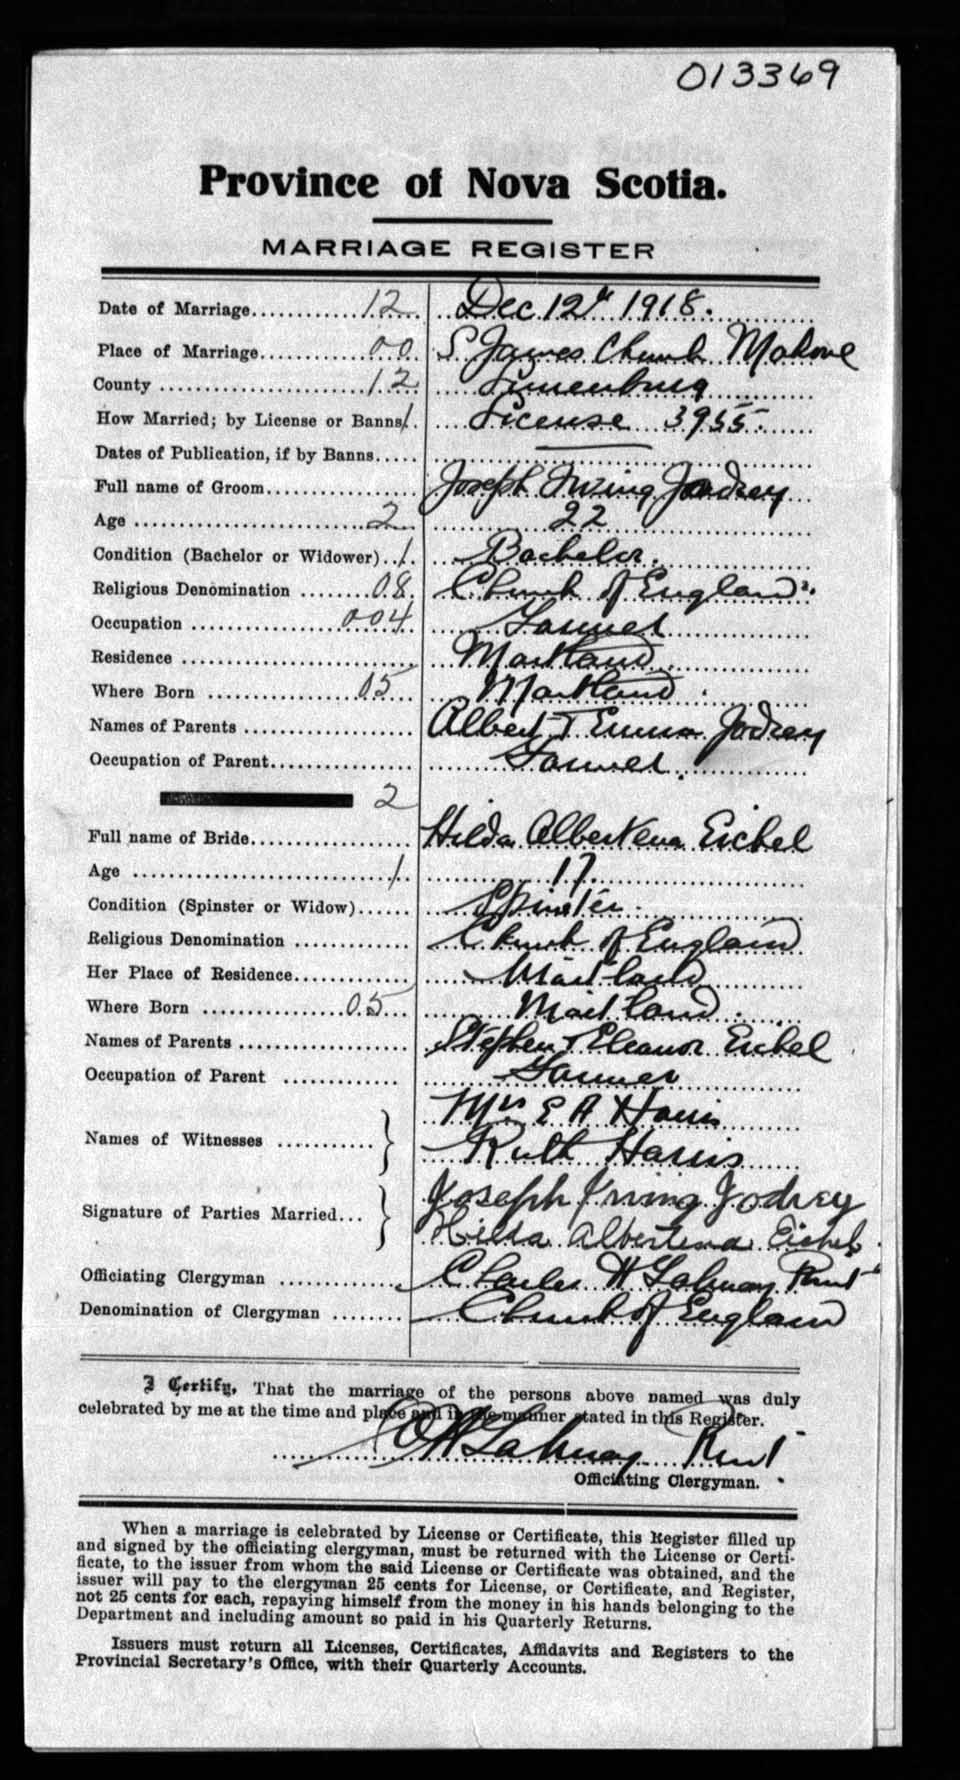 013369
Province of Nova Scotia.
MARRIAGE REGISTER
Date of Marriage............12... Dec 12th 1918.
Place of Marriage............00 S James Church Mahone
County ............12 Lunenburg
How Married; by License or Banns 1. License 3955.
Dates of Publication, if by Banns.....
Full name of Groom............... Joseph Irving Jodrey
Age ............2 22
Condition (Bachelor or Widower)..1. Bachelor.
Religious Denomination .......08. Church of England.
Occupation ............004 Farmer
Residence ............ Maitland
Where Born ............05 Maitland.
Names of Parents ............ Albert & Emma Jodrey
Occupation of Parent............ Farmer.
2
Full name of Bride............ Hilda Albertena Eichel
Age ............1. 17.
Condition (Spinster or Widow)...... Spinster.
Religious Denomination ............ Church of England
Her Place of Residence............ Maitland
Where Born ............05... Maitland.
Names of Parents ............ Stephen & Eleanor Eichel
Occupation of Parent ............ Farmer
Mrs E A Harris
Names of Witnesses ............
Ruth Harris
Joseph Irving Jodrey
Signature of Parties Married...
Hilda Albertena Eichel.
Officiating Clergyman ............ Charles W
Denomination of Clergyman ........ Church of England
I Certify, That the marriage of the persons above named was duly
celebrated by me at the time and place and in the manner stated in this Register.
Officiating Clergyman.
When a marriage is celebrated by License or Certificate, this Register filled up
and signed by the officiating clergyman, must be returned with the License or Certi-
ficate, to the issuer from whom the said License or Certificate was obtained, and the
issuer will pay to the clergyman 25 cents for License, or Certificate, and Register,
not 25 cents for each, repaying himself from the money in his hands belonging to the
Department and including amount so paid in his Quarterly Returns.
Issuers must return all Licenses, Certificates, Affidavits and Registers to the
Provincial Secretary's Office, with their Quarterly Accounts.